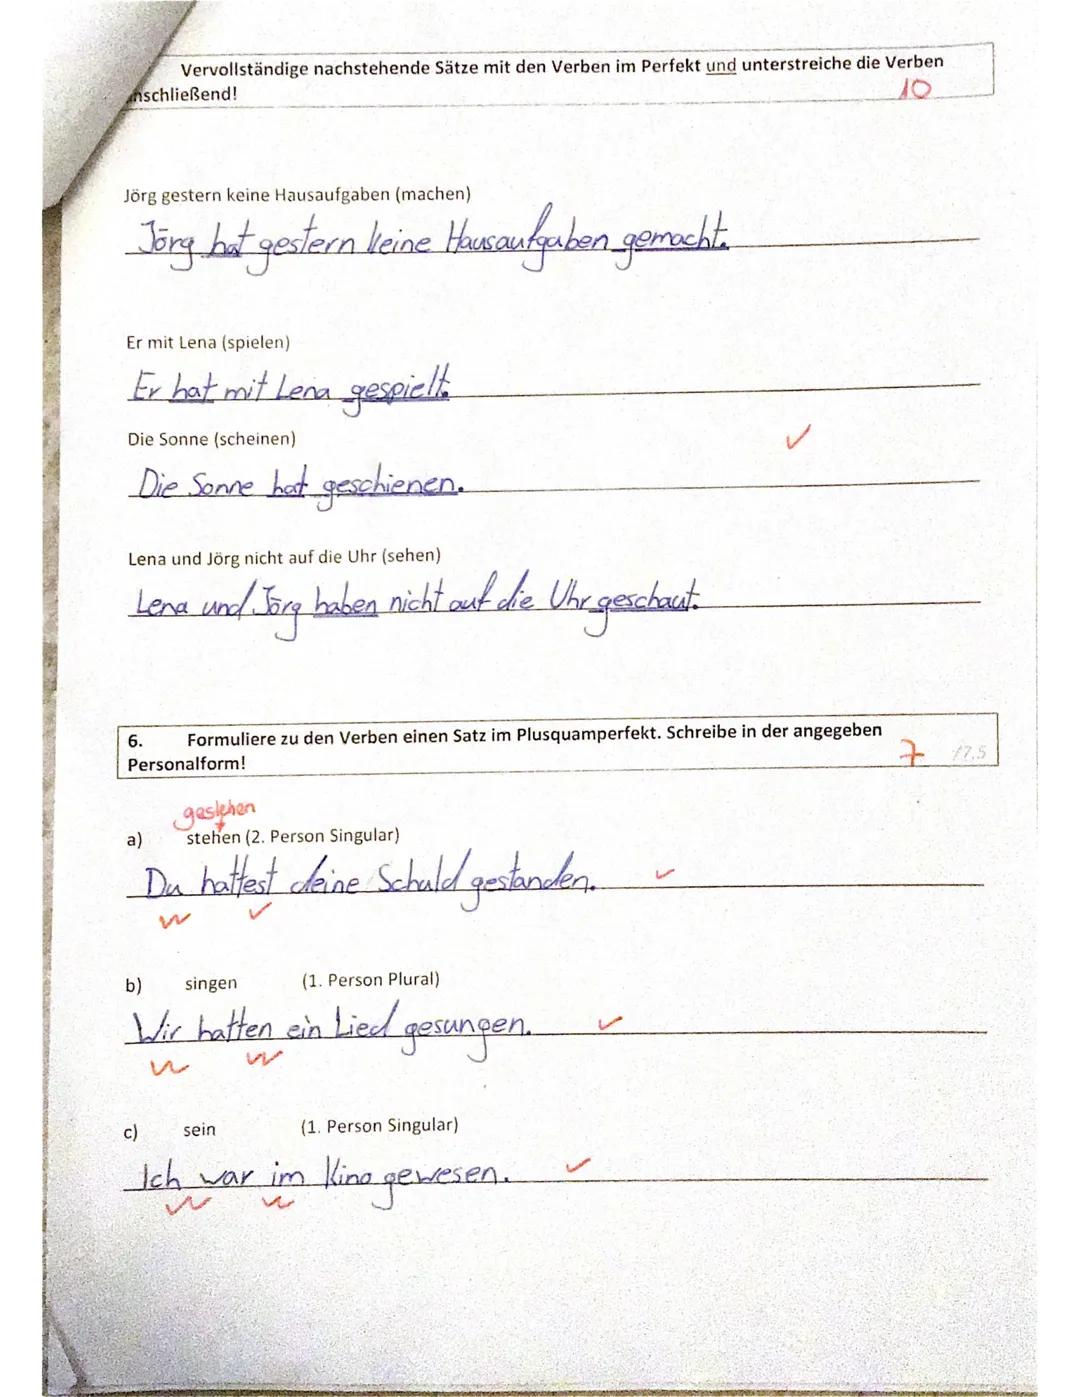 Vervollständige nachstehende Sätze mit den Verben im Perfekt und unterstreiche die Verben
nschließend!
10
Jörg gestern keine Hausaufgaben (machen)
Jörg hat gestern keine Hausaufgaben gemacht.
Er mit Lena (spielen)
Er hat mit Lena gespielt.
Die Sonne (scheinen)
Die Sonne hat geschienen.
Lena und Jörg nicht auf die Uhr (sehen)
Lena und Jörg haben nicht auf die Uhr geschaut.
6. Formuliere zu den Verben einen Satz im Plusquamperfekt. Schreibe in der angegeben
Personalform!
7 /7.5
a) stehen (2. Person Singular)
Du hattest deine Schuld gestanden.
b) singen (1. Person Plural)
Wir hatten ein Lied gesungen.
c) sein (1. Person Singular)
Ich war im Kino gewesen.